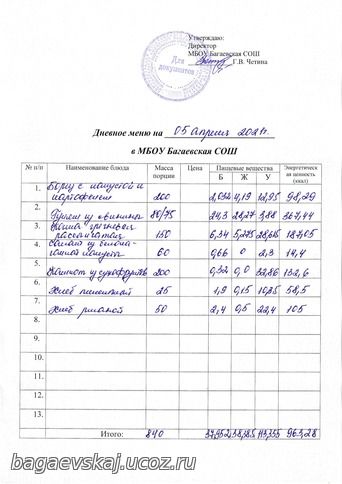 Утверждаю:
Директор
МБОУ Багаевская СОШ
Г.В. Четина
Для
документов
Дневное меню на 05 апреля 2021г.
в МБОУ Багаевская СОШ
№ п/п Наименование блюда Масса порции Цена Пищевые вещества Энергетическая ценность (ккал)
Б Ж У
1. Борщ с капустой и
картофелем 200 4,19 12,95 98,29
2. Гуляш из свинины 80/75 24,3 28,27 3,88 367,44
3. Каша гречневая
рассыпчатая 150 6,34 5,275 28,615 187,05
4. Салат из
капусты 60 0,66 0 2,3 14,4
5. Компот из сухофруктов 200 0,32 0 32,86 132,6
6. Хлеб пшеничный 25 1,9 0,15 58,5
7. Хлеб ржаной 50 2,4 0,5 22,4 105
8.
9.
10.
11.
12.
13.
Итого: 840 963,28
bagaevskaj.ucoz.ru